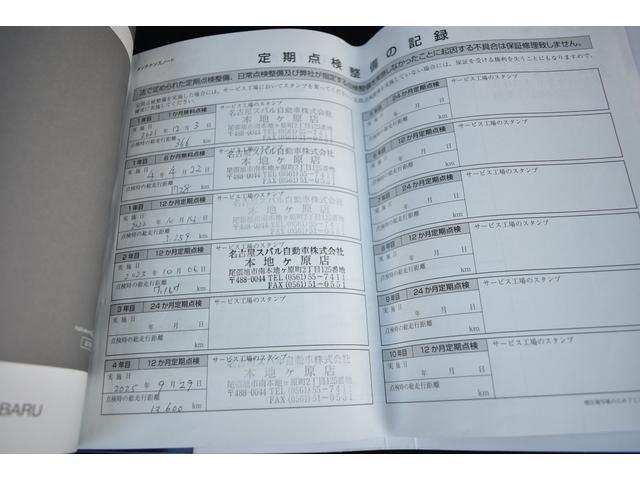 メンテナンスノート
定期点検整備の記録
法で定められた定期点検整備、日常点検整備及び弊社が指定する点検整備を実施しなかったことに起因する不具合は保証修理致しません。
1か月無料点検
サービス工場のスタンプ
実施日
2021年12月3日
点検時の総走行距離
366 km
名古屋スバル自動車株式会社
本地ヶ原店
尾張旭市南本地ヶ原町2丁目125番地
〒488-0044 TEL(0561)55-7411
FAX(0561)51-0551
1年目 6か月無料点検
サービス工場のスタンプ
実施日
4年4月22日
点検時の総走行距離
km
名古屋スバル自動車株式会社
本地ヶ原店
尾張旭市南本地ヶ原町2丁目125番地
〒488-0044 TEL(0561)55-7411
FAX(0561)51-0551
1年目 12か月定期点検
サービス工場のスタンプ
実施日
2022年10月14日
点検時の総走行距離
km
名古屋スバル自動車株式会社
本地ヶ原店
尾張旭市南本地ヶ原町2丁目125番地
〒488-0044 TEL(0561)55-7411
FAX(0561)51-0551
2年目 12か月定期点検
実施日
2023年10月06日
点検時の総走行距離
km
名古屋スバル自動車株式会社
本地ヶ原店
尾張旭市南本地ヶ原町2丁目125番地
〒488-0044 TEL(0561)55-7411
FAX(0561)51-0551
3年目 24か月定期点検
サービス工場のスタンプ
実施日
年 月 日
点検時の総走行距離
km
4年目 12か月定期点検
サービス工場のスタンプ
実施日
2025年9月29日
点検時の総走行距離
13,600 km
名古屋スバル自動車株式会社
本地ヶ原店
尾張旭市南本地ヶ原町2丁目125番地
〒488-0044 TEL(0561)55-7411
FAX(0561)51-0551
24か月定期点検
サービス工場のスタンプ
実施日
年 月 日
点検時の総走行距離
km
12か月定期点検
サービス工場のスタンプ
実施日
年 月 日
点検時の総走行距離
km
24か月定期点検
サービス工場のスタンプ
年 月 日
点検時の総走行距離
km
12か月定期点検
サービス工場のスタンプ
実施日
年 月 日
点検時の総走行距離
km
9年目 24か月定期点検
サービス工場のスタンプ
実施日
年 月 日
点検時の総走行距離
km
10年目 12か月定期点検
サービス工場のスタンプ
実施日
年 月 日
点検時の総走行距離
km
BARU